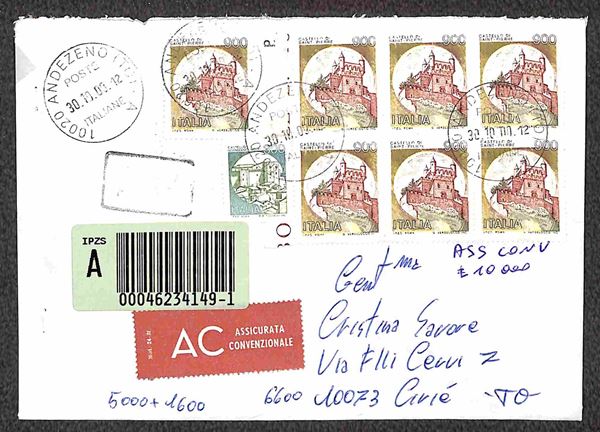 10020 ANDEZENO (TO) A
POSTE
30.10.00.12
ITALIANE
CASTELLO DI
SAINT-PIERRE 900
ITALIA
CASTELLO DI
SAINT-PIERRE 900
ITALIA
CASTELLO DI
SAINT-PIERRE 900
ITALIA
CASTELLO DI
SAINT-PIERRE 900
ITALIA
CASTELLO DI
SAINT-PIERRE 900
ITALIA
CASTELLO DI
SAINT-PIERRE 900
ITALIA
CASTELLO DI
SAINT-PIERRE 900
ITALIA
IPZS
A
00046234149-1
AC ASSICURATA
CONVENZIONALE
ASS CONV
£ 10 000
Gent ma
Cristina Savore
Via F.lli Cervi 2
10073 Cirié - TO
5000+1600
6600